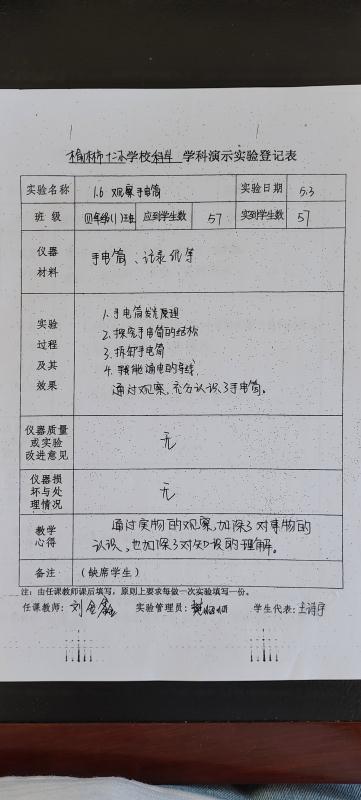 榆林十二小学校科学学科演示实验登记表
实验名称 1.6 观察手电筒 实验日期 5.3
班级 四年级(1)班 应到学生数 57 实到学生数 57
仪器
材料
手电筒、记录纸等
实验
过程
及其
效果
1. 手电筒发光原理
2. 探究手电筒的结构
3. 拆卸手电筒
4. 能输电的导线
通过观察,充分认识了手电筒。
仪器质量
或实验
改进意见
无
仪器损
坏与处
理情况
无
教学
心得
通过实物的观察,加深了对事物的
认识,也加深了对知识的理解。
备注 (缺席学生)
注:由任课教师课后填写,原则上要求每做一次实验填写一份。
任课教师:刘 实验管理员: 学生代表:王诗